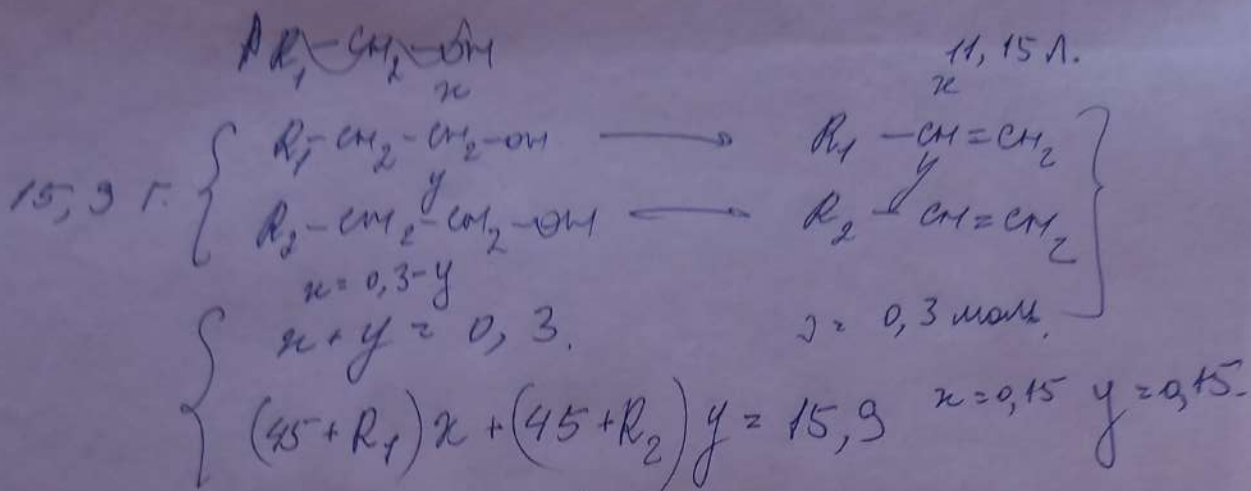 R₁-CH₂-OH
x
11,15 л.
x
R₁-CH₂-CH₂-OH ⟶ R₁-CH=CH₂
15,9 г.
y
y
R₂-CH₂-CH₂-OH ⟶ R₂-CH=CH₂
x=0,3-y
x+y=0,3.
ν=0,3 моль.
(45+R₁)x+(45+R₂)y=15,9
x=0,15 y=0,15.